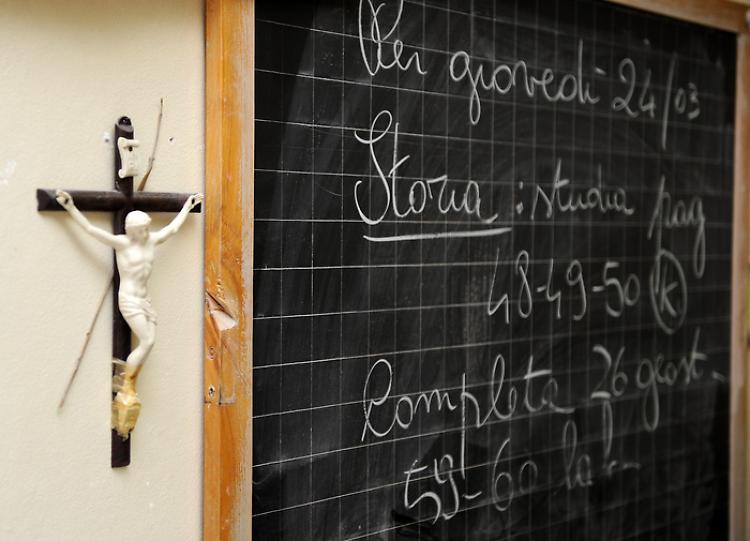 Per giovedì 24/03
Storia : studia pag
48-49-50 K
Completa 26 geost.
59-60 la